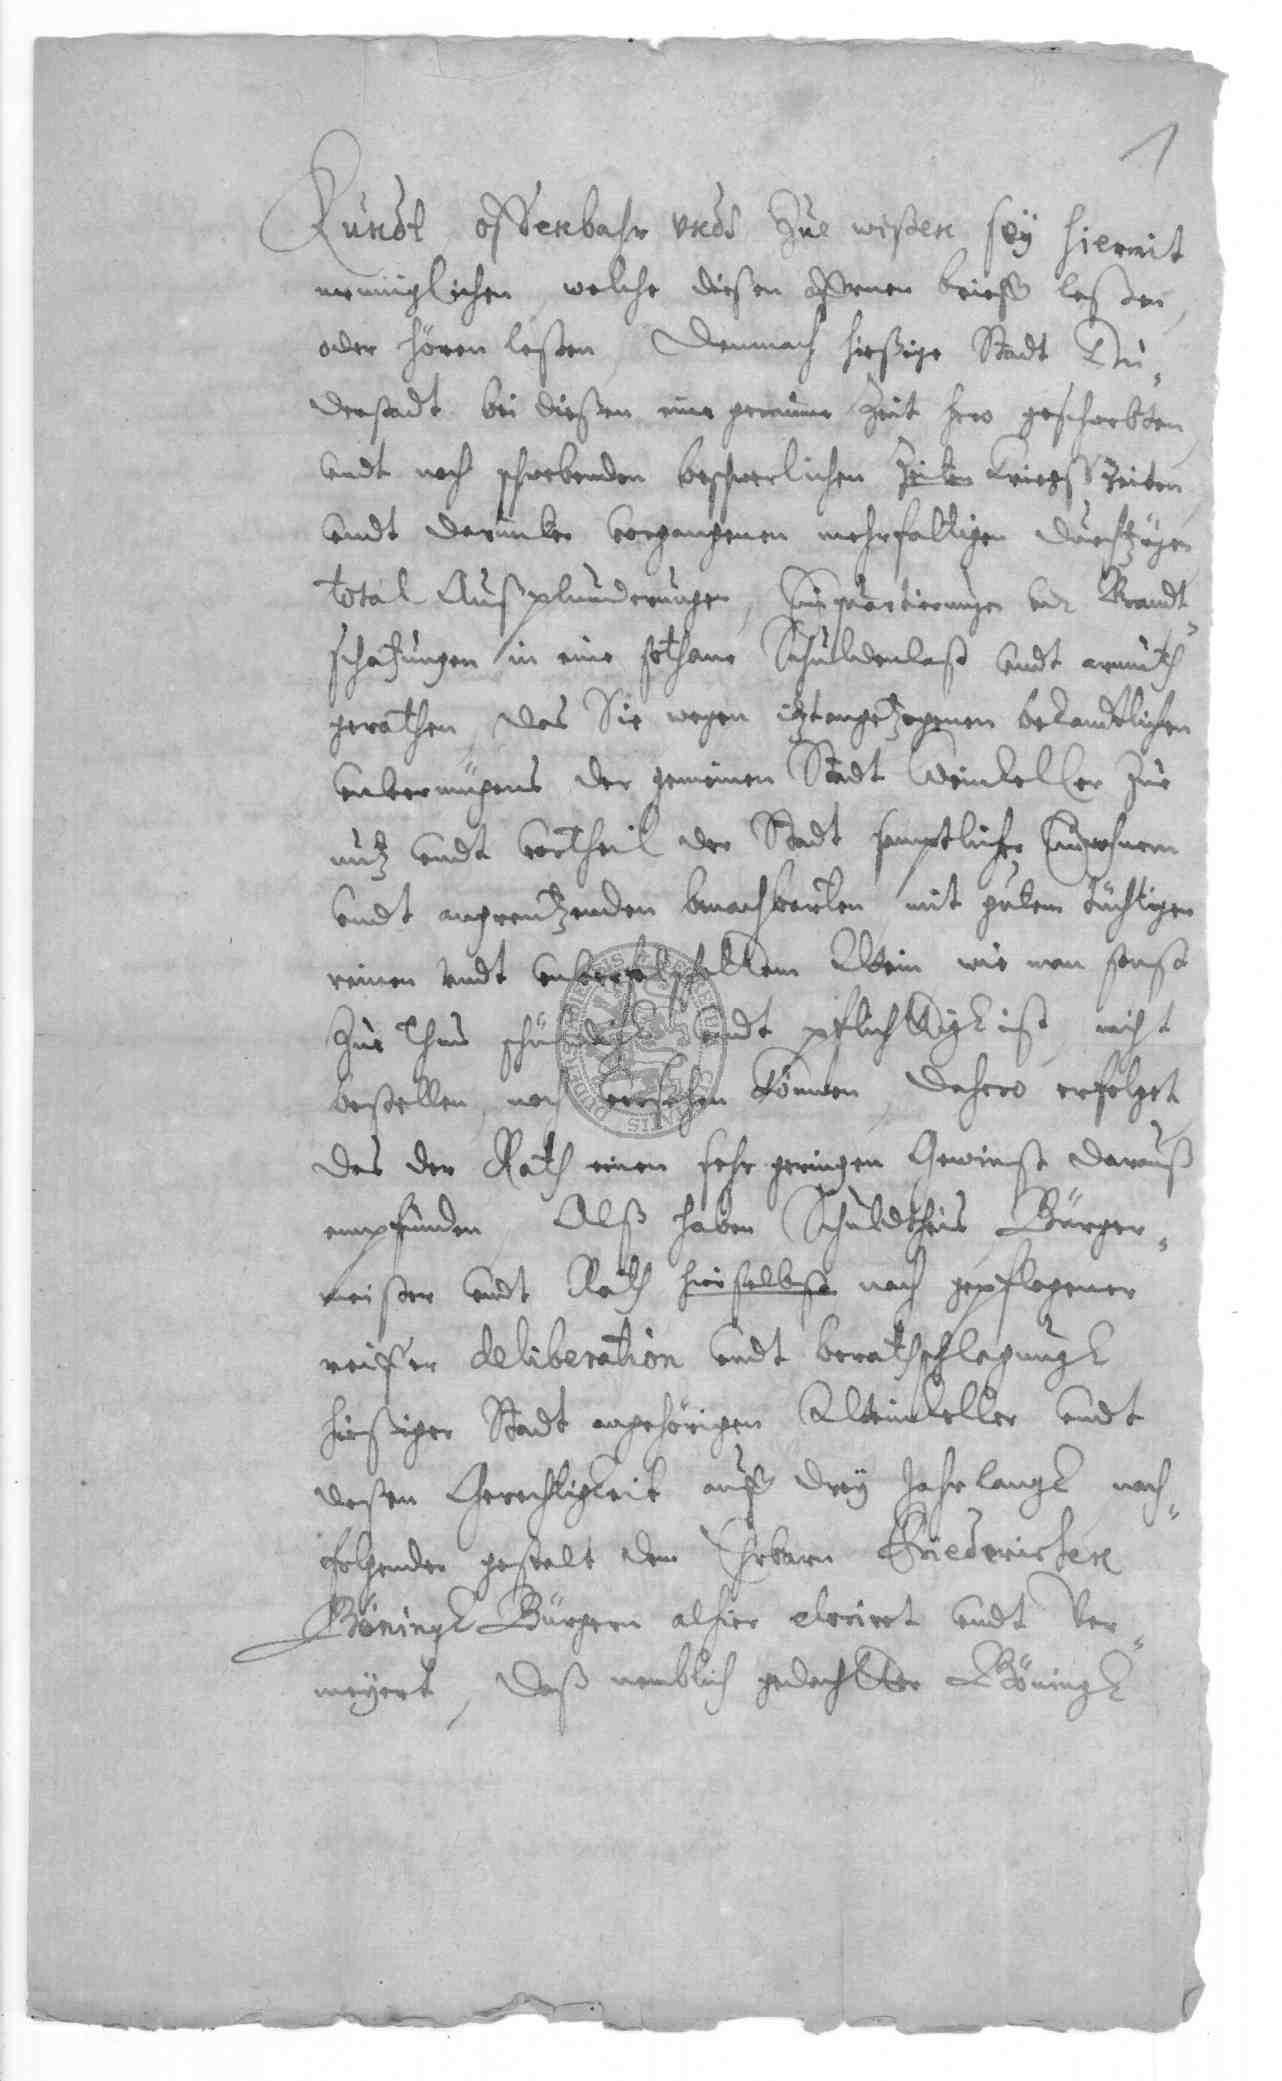 1
Kundt offenbahr vndt Zue wißen seÿ hiermit
menniglichen, welche diesen offenen brieff leßen,
oder hören leßen, Demnach hießige Stadt Du-
derstadt bei dießen eine geraume Zeit hero geschwebten
vndt noch schwebenden beschwerlichen Zeiten KriegßZeiten
vndt darunter vorgangenen mehrfaltigen durchzügen
total Außplunderungen, Einquartierungen vndt Brandt-
schatzungen in eine sothane Schuldenlast vndt armuth
gerathen, das Sie wegen itztangezogenen bekandtlichen
vnvermügens der gemeinen Stadt Weinkeller Zue
nutz vndt vortheil der Stadt semptlicher Einwohnern
vndt angrentzenden benachbarten mit gutem tüchtigen
reinen vndt vnverfelschtem Wein wie man sonst
Zue thun schüldigk vndt pflichtigk ist, nicht
bestellen, noch versehen können, dahero erfolget
das der Rath einen sehr geringen Gewinst darauß
empfunden, Alß haben Schuldtheis Bürger-
meister vndt Rath hieselbst nach gepflogener
reiffer deliberation vndt berathschlagungk
hießiger Stadt angehörigen Weinkeller vndt
deßen Gerechtigkeit auff dreÿ Jahr langk nach-
folgender gestalt dem Ehrbarn Friederichen
Böningk Bürgern alhier elocirt vndt Ver-
meÿert, Daß nemblich gedachter Böningk